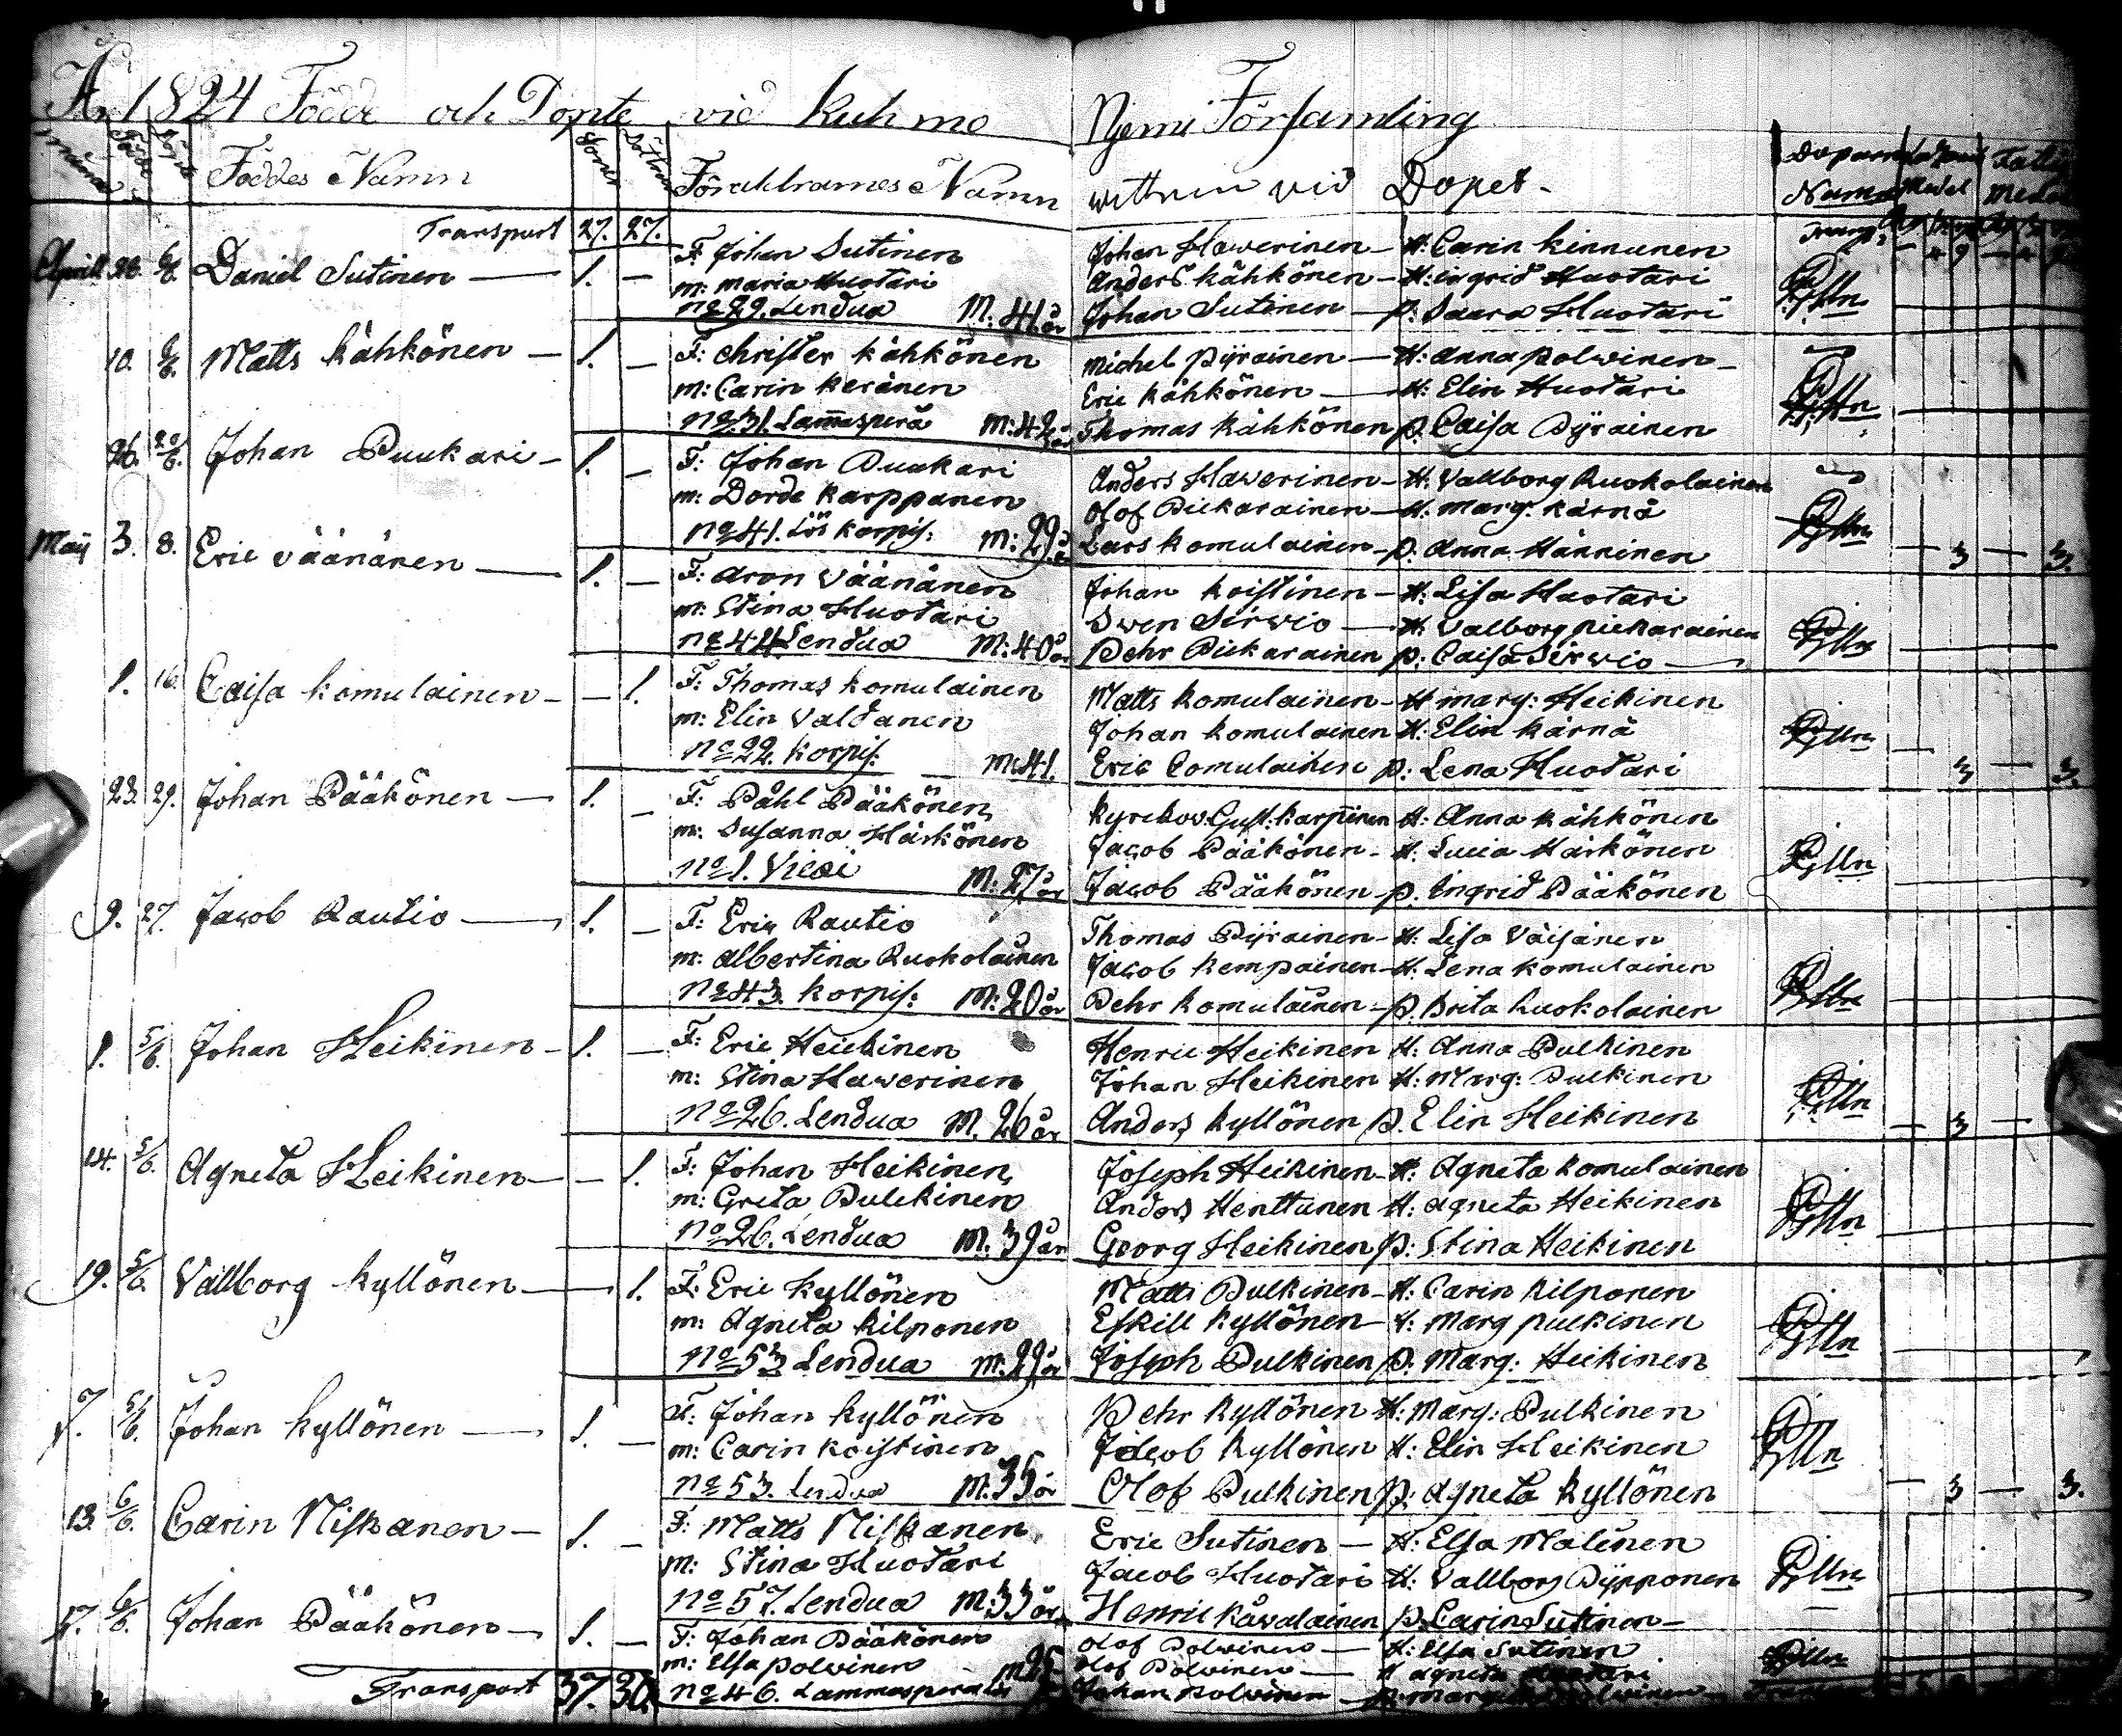 År 1824 Födde och Döpte vid Kuhmo Njemi Församling
Födde Döpte Föddes Namn Söner Döttrar Föräldrarnes Namn wittnen vid Dopet
Namn
Transport 27. 27.
Aprill 28. Daniel Sutinen — 1. —
F: Johan Sutinen
m: Maria Huotari
No 29. Lendua M: 41 år
Johan Hawerinen — H: Carin Kinnunen
Anders Kähkönen — H: Ingrid Huotari
Johan Sutinen — p: Saara Huotari
10. 6/6. Matts Kähkönen — 1. —
F: Christer Kähkönen
m: Carin Keränen
No 31. Lam̅asperä M: 42 år
Michel Pÿrainen — H: Anna Polwinen —
Eric Kähkönen — H: Elin Huotari
Thomas Kähkönen p: Caisa Pÿrainen
26. 20/6. Johan Puukari — 1. —
F: Johan Puukari
m: Dorde Karppanen
No 41. Lös Korpis: M: 29 år
Anders Hawerinen — H: Vallborg Ruokolainen
Olof Piekarainen — H: Marg: Kärnä
Lars Komulainen — p. Anna Hänninen
— 3 — 3.
Maÿ 3. 8. Eric Väänänen — 1. —
F: Aron Väänänen
m: Stina Huotari
No 44 Lendua M: 40 år
Johan Koistinen — H: Lisa Huotari
Swen Sirwio — H: Valborg Piekarainen
Pehr Piekarainen p: Caisa Sirwio —
1. 16. Caisa Komulainen — — 1.
F: Thomas Komulainen
m: Elin Valdanen
No 22. Korpis: M: 41.
Matts Komulainen — H marg: Heikinen
Johan Komulainen H: Elin Kärnä
Eric Comulainen p: Lena Huotari
— 3 — 3.
23. 29. Johan Pääkönen — 1. —
F: Påhl Pääkönen
m: Susanna Härkönen
No 1. Viexi M: 27 år
Kyrckov: Gust: Karppinen H: Anna Kähkönen
Jacob Pääkönen — H: Lucia Härkönen
Jacob Pääkönen p. Ingrid Pääkönen
9. 27. Jacob Rautio — 1. —
F: Eric Rautio
m: Albertina Ruokolainen
No 43. Korpis: M: 20 år
Thomas Pÿrainen — H: Lisa Väisänen
Jacob Kempainen — H: Lena Komulainen
Pehr Komulainen — p. Brita Ruokolainen
1. 5/6. Johan Heikinen — 1. —
F: Eric Heikinen
m: Stina Hawerinen
No 26. Lendua M. 26 år
Henric Heikinen H: Anna Pulkinen
Johan Heikinen H: Marg: Pulkinen
Anders Kyllönen p. Elin Heikinen
— 3 —
14. 5/6. Agneta Heikinen — — 1.
F: Johan Heikinen
m: Greta Pulckinen
No 26. Lendua M. 39 år
Joseph Heikinen — H: Agneta Komulainen
Anders Henttunen H: Agneta Heikinen
Georg Heikinen p: Stina Heikinen
19. 5/6. Vallborg Kyllönen — 1.
F: Eric Kyllönen
m: Agneta Kilponen
No 53 Lendua M: 29 år
Matts Pulkinen — H: Carin Kilponen
Eskill Kyllönen — H: Marg Pulkinen
Joseph Pulkinen p. Marg: Heikinen
7. 5/6. Johan Kyllönen — 1. —
F: Johan Kyllönen
m: Carin Koistinen
No 53. Lendua M: 35 år
Pehr Kyllönen H: Marg: Pulkinen
Jacob Kyllönen H: Elin Heikinen
Olof Pulkinen p: Agneta Kyllönen
— 3 — 3.
13. 6/6. Carin Niskanen — 1. —
F: Matts Niskanen
m: Stina Huotari
No 57. Lendua M: 33 år
Eric Sutinen — H: Elsa Malinen
Jacob Huotari H: Vallborg Pÿpponen
Henric Käwalainen p. Carin Sutinen —
17. 6/6. Johan Pääkönen — 1. —
F: Johan Pääkönen
m: Elsa Polvinen
No 46. Lammasperä M 25
Olof Polvinen — H: Elsa Sutinen
Olof Polvinen — H Agneta
Johan Polvinen — p:
Transport 37. 30.